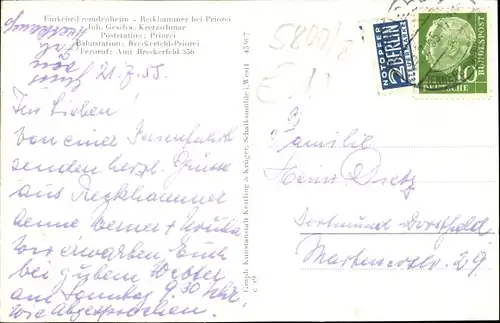 Einkehr-Fremdenheim - Reckhammer bei Priorei
Inh. Geschw. Kretzschmar
Poststation: Priorei
Bahnstation: Breckerfeld-Priorei
Fernruf: Amt Breckerfeld 356
45 917
21.7.55.
Ihr Lieben!
Von einer Ferienfahrt
senden herzl. Grüsse
aus Reckhammer
Werner +
Wir erwarten Euch
bei gutem Wetter
am Sonntag 9.30 Uhr
wie abgesprochen.
Graph. Kunstanstalt Kerzling & Krüger, Schalksmühle i. Westf.
NOTOPFER
2 BERLIN
STEUERMARKE
DEUTSCHE BUNDESPOST
10
5800/2
E11
Familie
Heinz Dietz
Dortmund-Dorstfeld
29